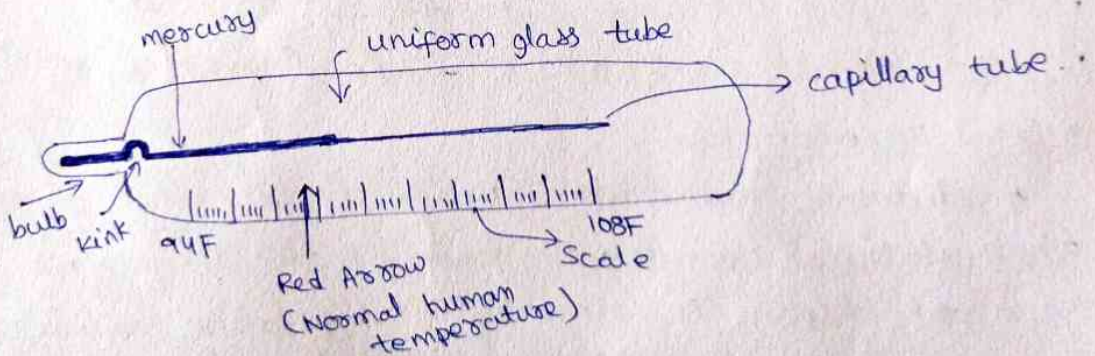 mercury
uniform glass tube
capillary tube
bulb
Kink
94F
108F
Scale
Red Arrow
(Normal human
temperature)